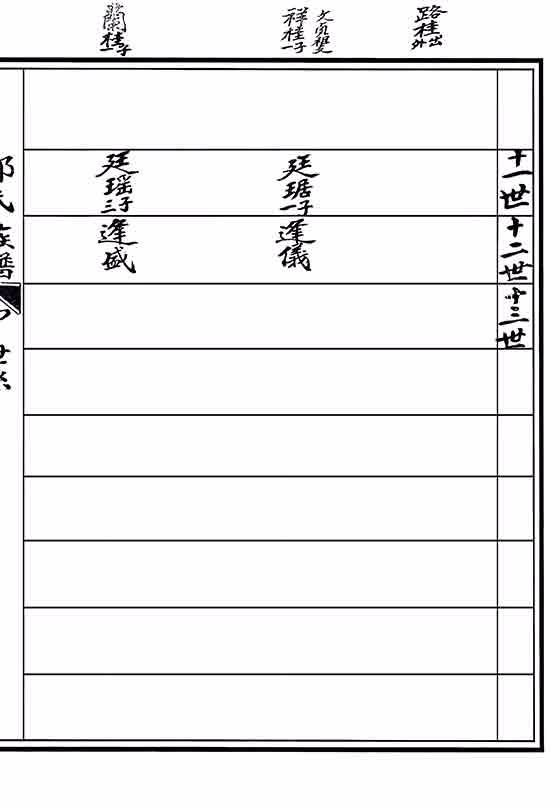 路桂
外出
祥桂
一子
蘭桂
一子
十一世
十二世
十三世
廷琚
一子
逢儀
廷瑶
三子
逢盛
氏族譜
世系